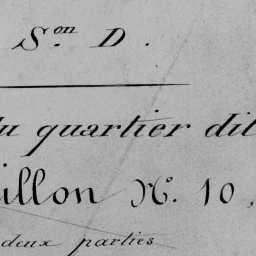 S.on D.
du quartier dit
illon N.° 10,
deux parties